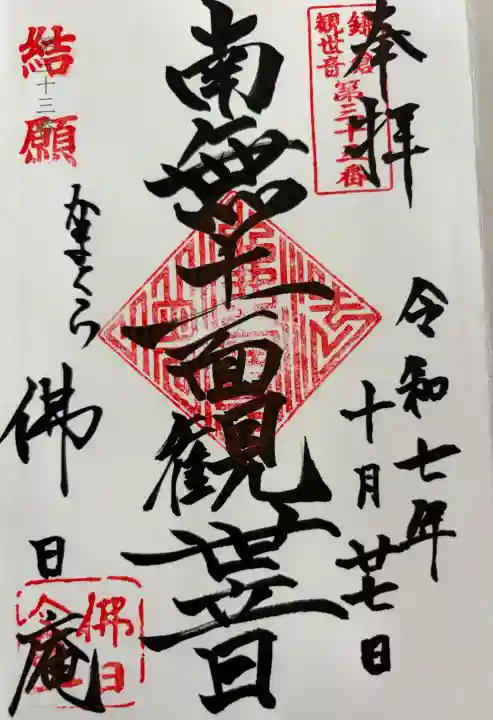 奉拝
鎌倉
観世音 第三十三番
令和七年
十月廿七日
南無十一面観世音
結願
十三
かまくら
佛日庵
佛日